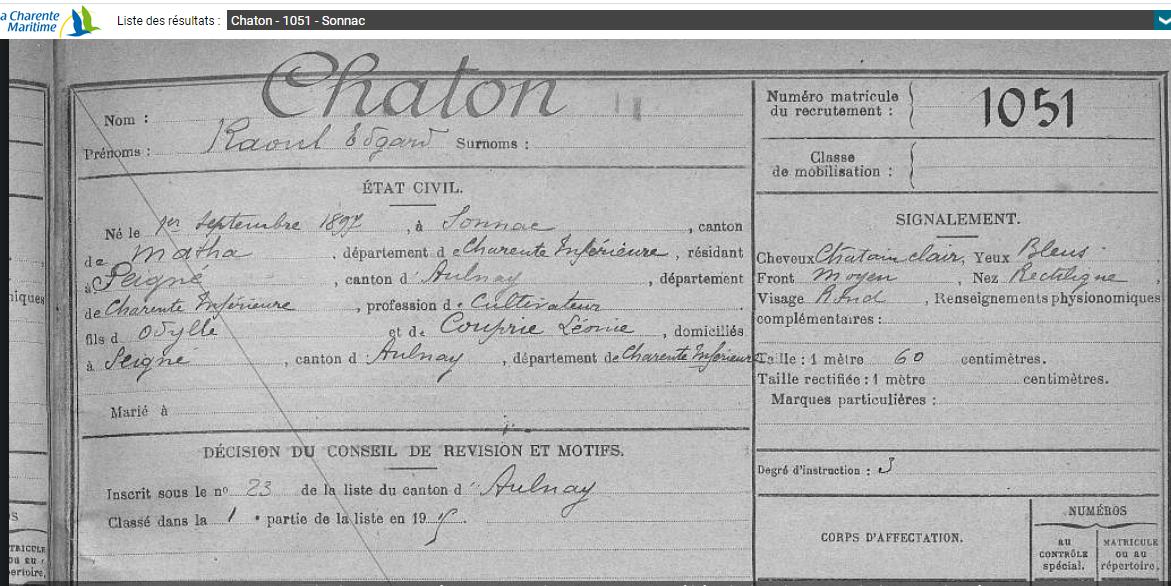 a Charente
Maritime
Liste des résultats : Chaton - 1051 - Sonnac
Nom : Chaton
Prénoms : Raoul Edgard Surnoms :
ÉTAT CIVIL.
Né le 1er Septembre 1897, à Sonnac, canton
de Matha, département de Charente Inférieure, résidant
à Seigné, canton d'Aulnay, département
de Charente Inférieure, profession de Cultivateur
fils d Odylle et de Couprie Léonie, domiciliés
à Seigné, canton d'Aulnay, département de Charente Inférieure
Marié à
DÉCISION DU CONSEIL DE REVISION ET MOTIFS.
Inscrit sous le no 23 de la liste du canton d'Aulnay
Classé dans la 1 e partie de la liste en 19
Numéro matricule
du recrutement : 1051
Classe
de mobilisation :
SIGNALEMENT.
Cheveux Chatain clair, Yeux Bleus
Front Moyen, Nez Rectiligne,
Visage Rond, Renseignements physionomiques
complémentaires :
Taille : 1 mètre 60 centimètres.
Taille rectifiée : 1 mètre centimètres.
Marques particulières :
Degré d'instruction : 3
CORPS D'AFFECTATION.
NUMÉROS
au
CONTRÔLE
spécial.
MATRICULE
ou au
répertoire.
niques
S
TRICULE
ou au
ertoire.